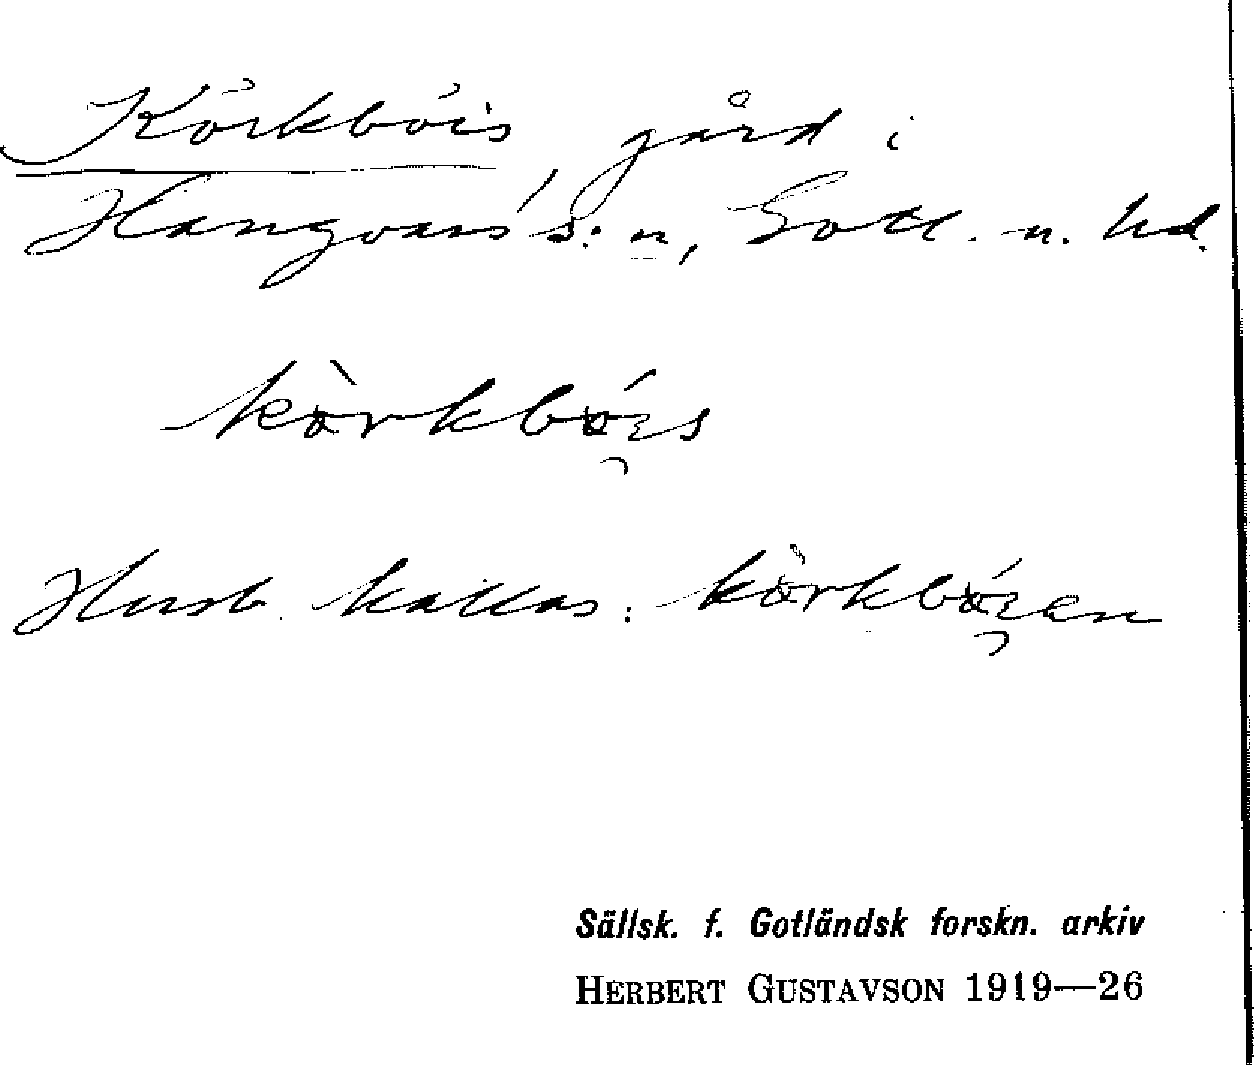 Körkbóis, gård i
Hangvars s:n, Gotl. n. hd.
kò̈rkbóis
Husb. kallas: kò̈rkbóien
Sällsk. f. Gotländsk forskn. arkiv
HERBERT GUSTAVSON 1919—26